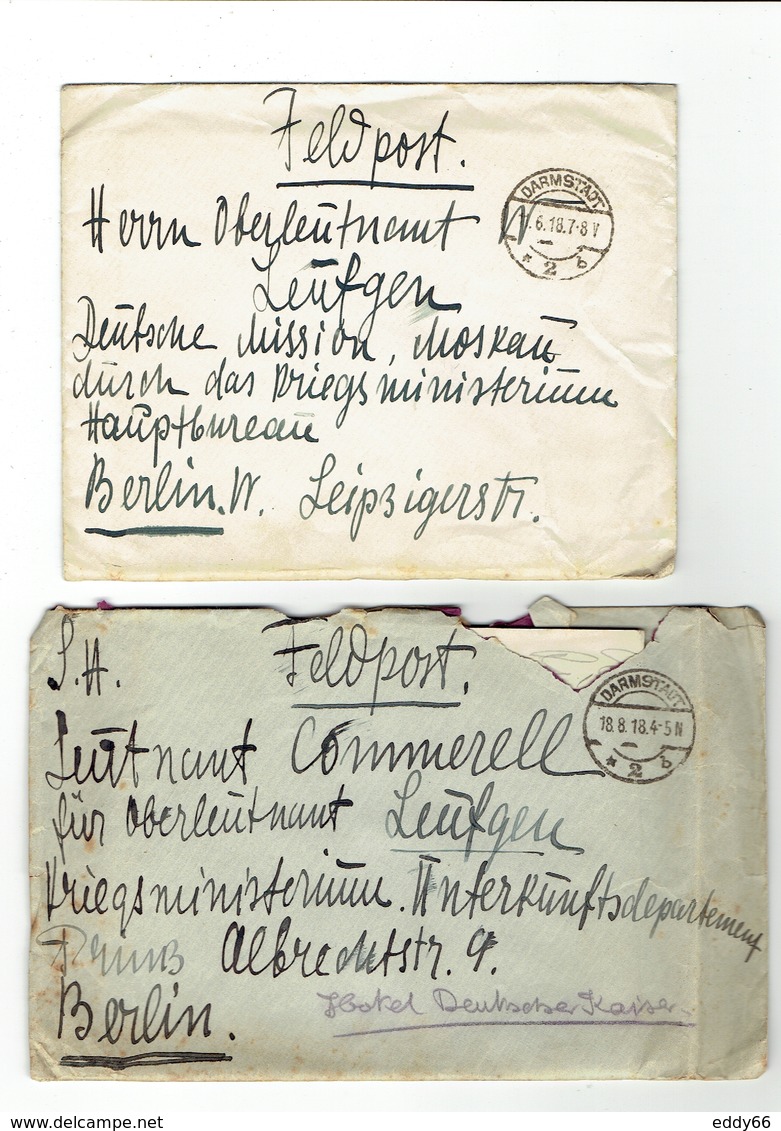 Feldpost.
DARMSTADT
.6.18.7-8V
* 2 b
Herrn Oberleutnamt W
Leufgen
Deutsche Mission, Moskau
durch das Kriegsministerium
Hauptbureau
Berlin. W. Leipzigerstr.
S. H. Feldpost.
DARMSTADT
18.8.18.4-5N
* 2 b
Leutnant Commerell
für Oberleutnant Leufgen
Kriegsministerium. Unterkunftsdepartement
Albrechtstr. 9.
Berlin.
Hotel Deutscher Kaiser
delcampe.net
eddy66